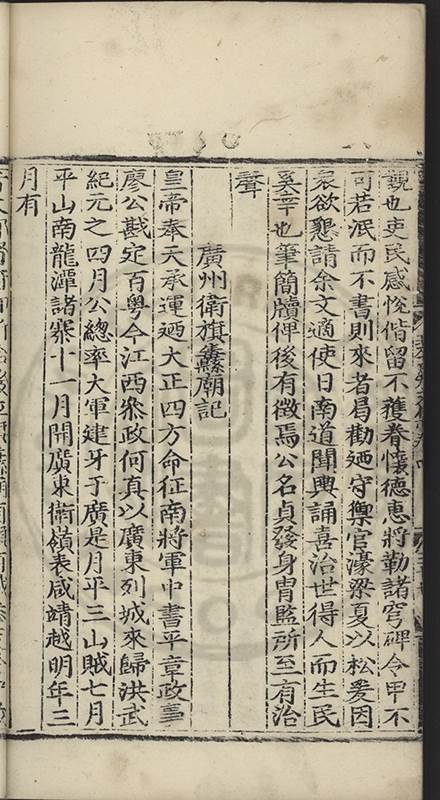 觀也吏民感悅偕留不獲眷懷德惠將勒諸穹碑令甲不
可若泯而不書則來者曷勸廼守禦官濠梁夏以松爰因
衆欲懇請余文適使日南道聞輿誦喜治世得人而生民
奚幸也筆簡牘俾後有徵焉公名貞發身胄監所至有治
聲
廣州衛旗纛廟記
皇帝奉天承運廼大正四方命征南將軍中書平章政事
廖公戡定百粤今江西叅政何真以廣東列城來歸洪武
紀元之四月公總率大軍建牙于廣是月平三山賊七月
平山南龍潭諸寨十一月開廣東衛嶺表咸靖越明年三
月有